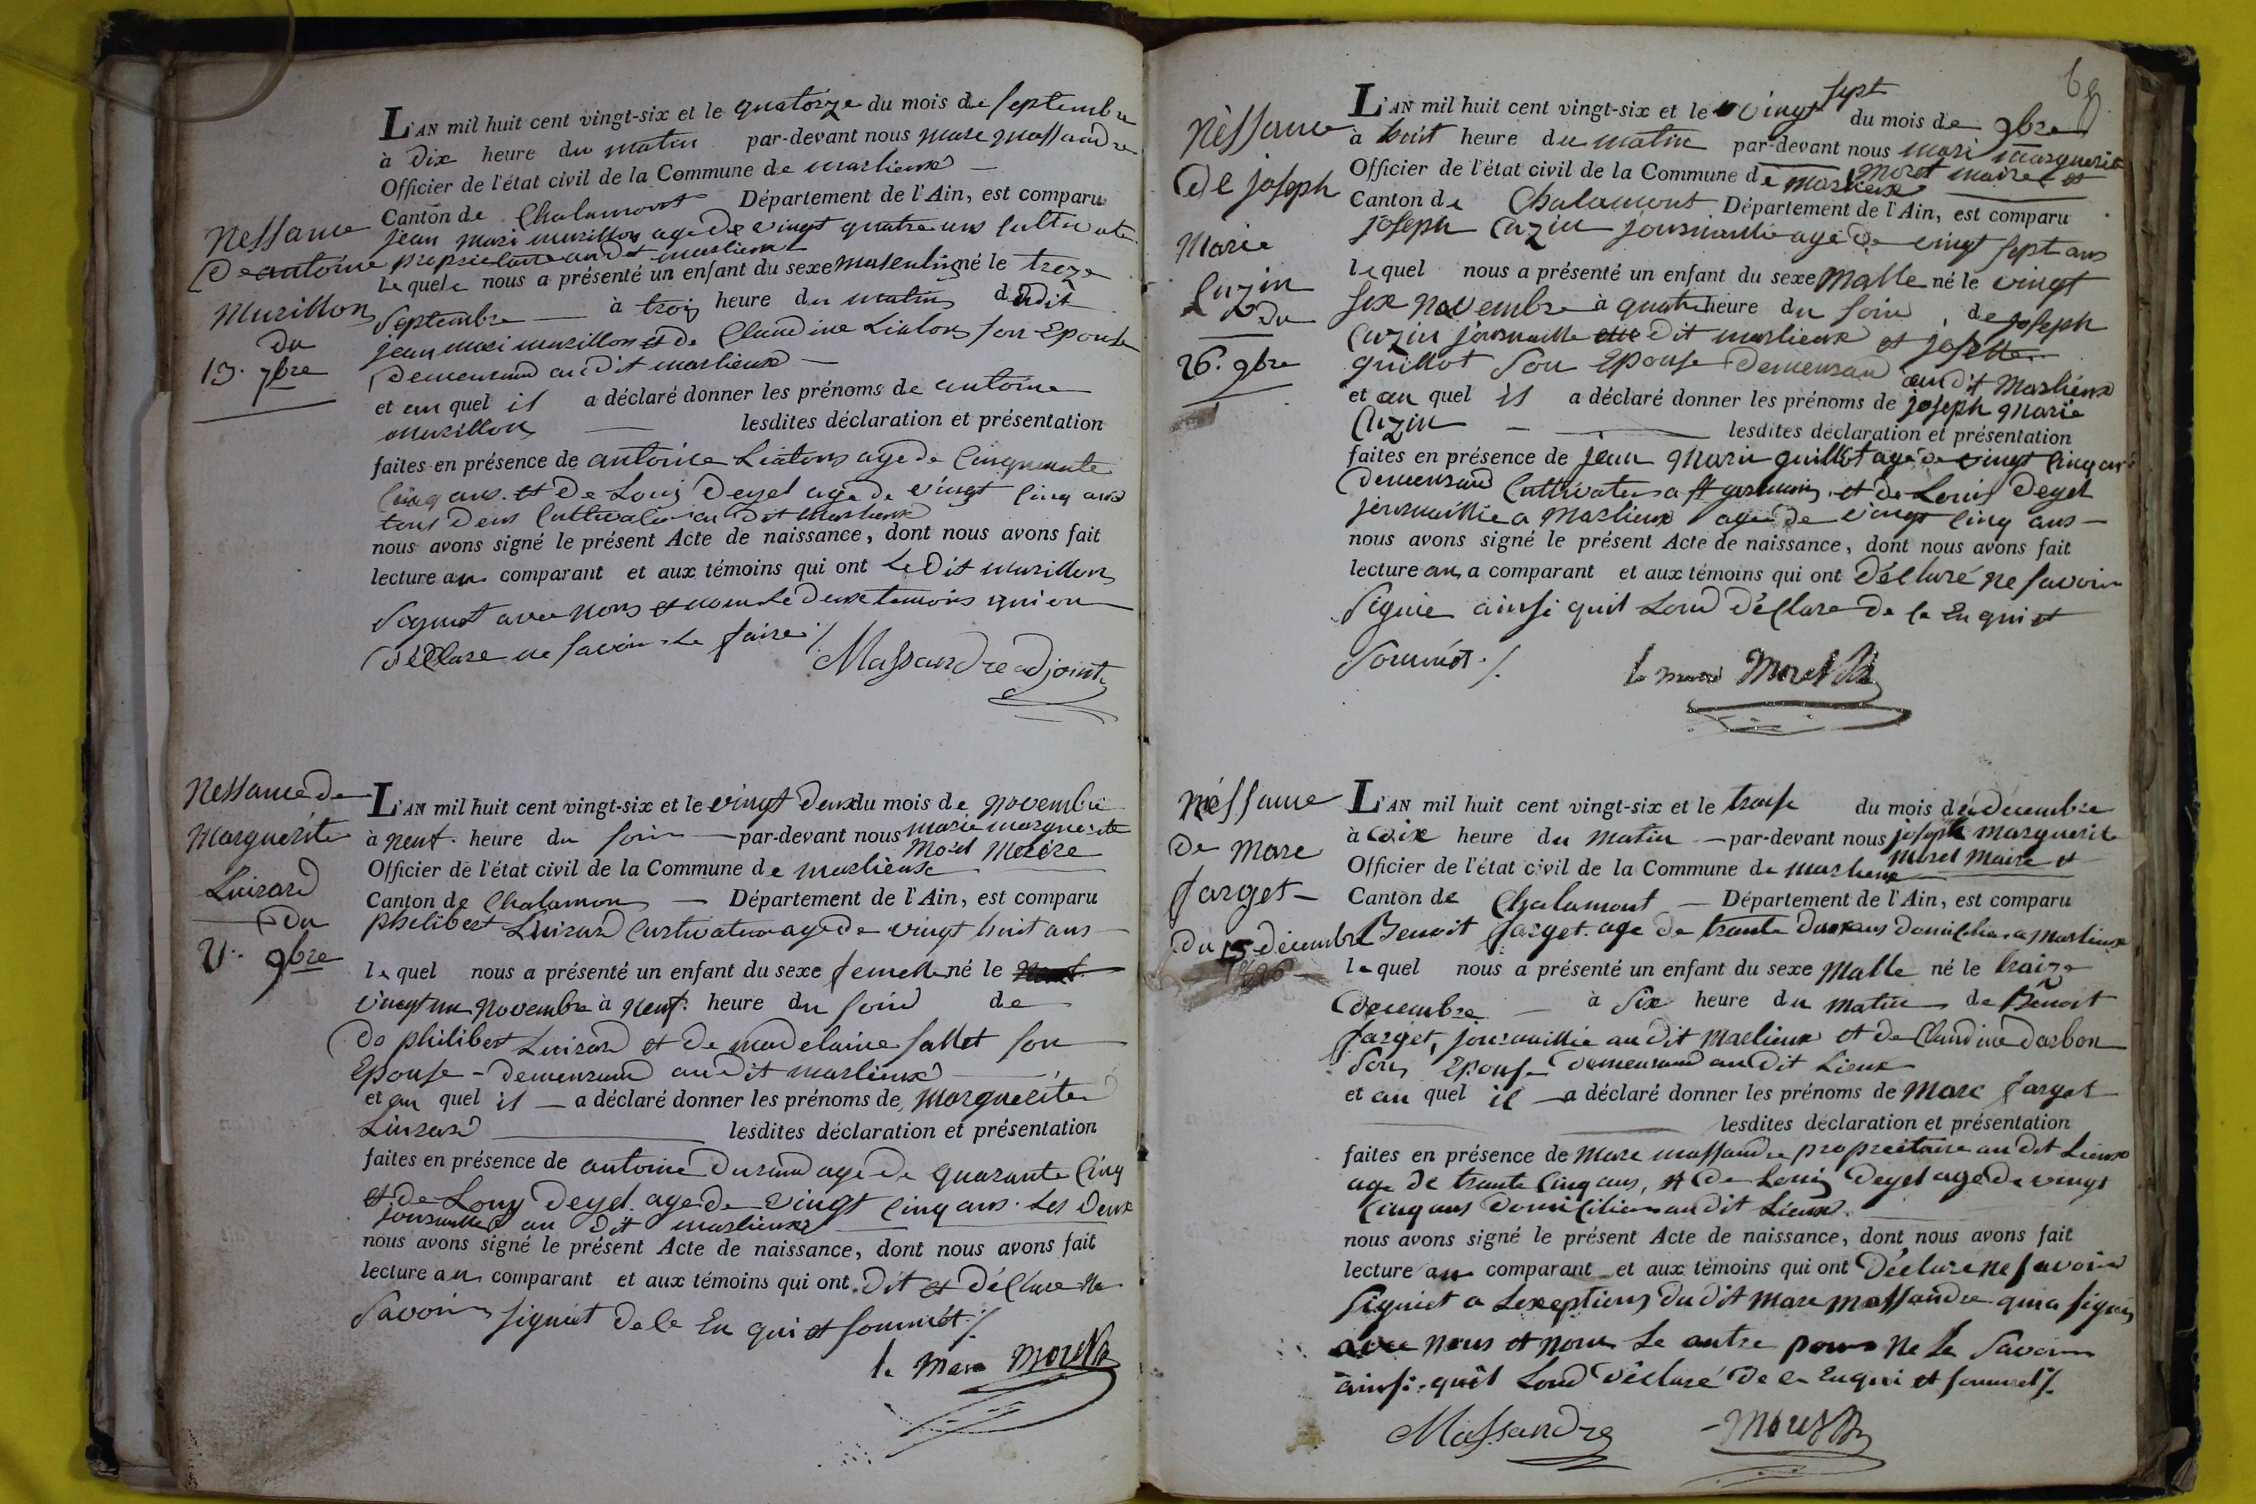 L'AN mil huit cent vingt-six et le quatorze du mois de septembre
à dix heure du matin par-devant nous marc massandre
Officier de l'état civil de la Commune de marlieux
Canton de Chalamont Département de l'Ain, est comparu
Nessance
de antoine
Murillon
du
13. 7bre
jean mari murillon age de vingt quatre ans cultivate
proprietaire au dit marlieux
le quele nous a présenté un enfant du sexe masculin né le treze
septembre à trois heure du matin dudit
jean mari murillon et de Claudine Liatons son Epouse
demeurand au dit marlieux
et au quel il a déclaré donner les prénoms de antoine
murillon lesdites déclaration et présentation
faites en présence de antoine Liatons age de Cinquante
Cinq ans. et de Louis Deyel age de vingt cinq ans
tous deux Cultivateur au dit marlieux
nous avons signé le présent Acte de naissance, dont nous avons fait
lecture au comparant et aux témoins qui ont Le dit murillon
signet avec nous et nom Le deux temoins qui on
déClare ne savoir Le faire ./.
Massandre adjoint
Nessance de
Marguerite
Luirard
du
21. 9bre
L'AN mil huit cent vingt-six et le vingt deux du mois de novembre
à neuf. heure du soir par-devant nous marie marguerite
morel Maire
Officier de l'état civil de la Commune de marlieux
Canton de Chalamon Département de l'Ain, est comparu
philibert Luirard Cultivateur age de vingt huit ans
le quel nous a présenté un enfant du sexe femelle né le
vingt un novembre à neuf heure du soird de
de philibert Luirard et de madelaine sallet son
Epouse - demeurand au dit marlieux
et au quel il a déclaré donner les prénoms de, Marguerite
Luirard lesdites déclaration et présentation
faites en présence de antoine Durand age de quarante Cinq
et de Louy Deyel. age de vingt Cinq ans. Les Deux
journallie au dit marlieux
nous avons signé le présent Acte de naissance, dont nous avons fait
lecture au comparant et aux témoins qui ont. dit et déClare ne
savoir signiet de le En qui et sommét ./.
le Mare Morel
69
Nèssance
de joseph
Marie
Cuzin
du
26. 9bre
L'AN mil huit cent vingt-six et le vingt sept du mois de 9bre
à huit heure du matin par-devant nous mari marguerite
Morel maire et
Officier de l'état civil de la Commune de marlieux
Canton de Chalamont Département de l'Ain, est comparu
joseph Cuzin journaillie agé de vingt sept ans
lequel nous a présenté un enfant du sexe Malle né le vingt
six novembre à quatre heure du soir, de joseph
Cuzin journaille dit marlieux et josette
guillot son Epouse demeurand au dit Marlieux
et au quel il a déclaré donner les prénoms de joseph marie
Cuzin lesdites déclaration et présentation
faites en présence de jean Marie guillot age de vingt Cinq ans
demeurand Cultivateur a st germain. et de Louis Deyel
journaillie a Marlieux age de vingt cinq ans
nous avons signé le présent Acte de naissance, dont nous avons fait
lecture au a comparant et aux témoins qui ont déClaré ne savoir
signie ainsi quil Lond déClare de le En qui et
sommét ./.
le mare Morel
Néssance
de Marc
farget
du 15 décembre
1826
L'AN mil huit cent vingt-six et le traise du mois de decembre
à dix heure du matin par-devant nous joseph marguerite
morel Maire et
Officier de l'état civil de la Commune de marlieux
Canton de Chalamont Département de l'Ain, est comparu
Benoit farget. age de trante deux ans domicilier a Marlieux
le quel nous a présenté un enfant du sexe Malle né le traize
decembre à six heure du matin de Benoit
farget, journaillie au dit Marlieux et de Claudine darbon
son Epouse demeurand au dit Lieux
et au quel il a déclaré donner les prénoms de Marc farget
lesdites déclaration et présentation
faites en présence de Marc massandre proprietaire au dit Lieux
age de trante Cinq ans, et de Louis Deyel age de vingt
Cinq ans domicilier au dit Lieux.
nous avons signé le présent Acte de naissance, dont nous avons fait
lecture au comparant et aux témoins qui ont déclare ne savoird
signiet a Lexeptions du dit Marc Massandre qui a signé
avec nous et nom Le autre pour ne le savoir
ainsi. quil Lond déClaré de le Enqui et sommét ./.
Massandre Morel